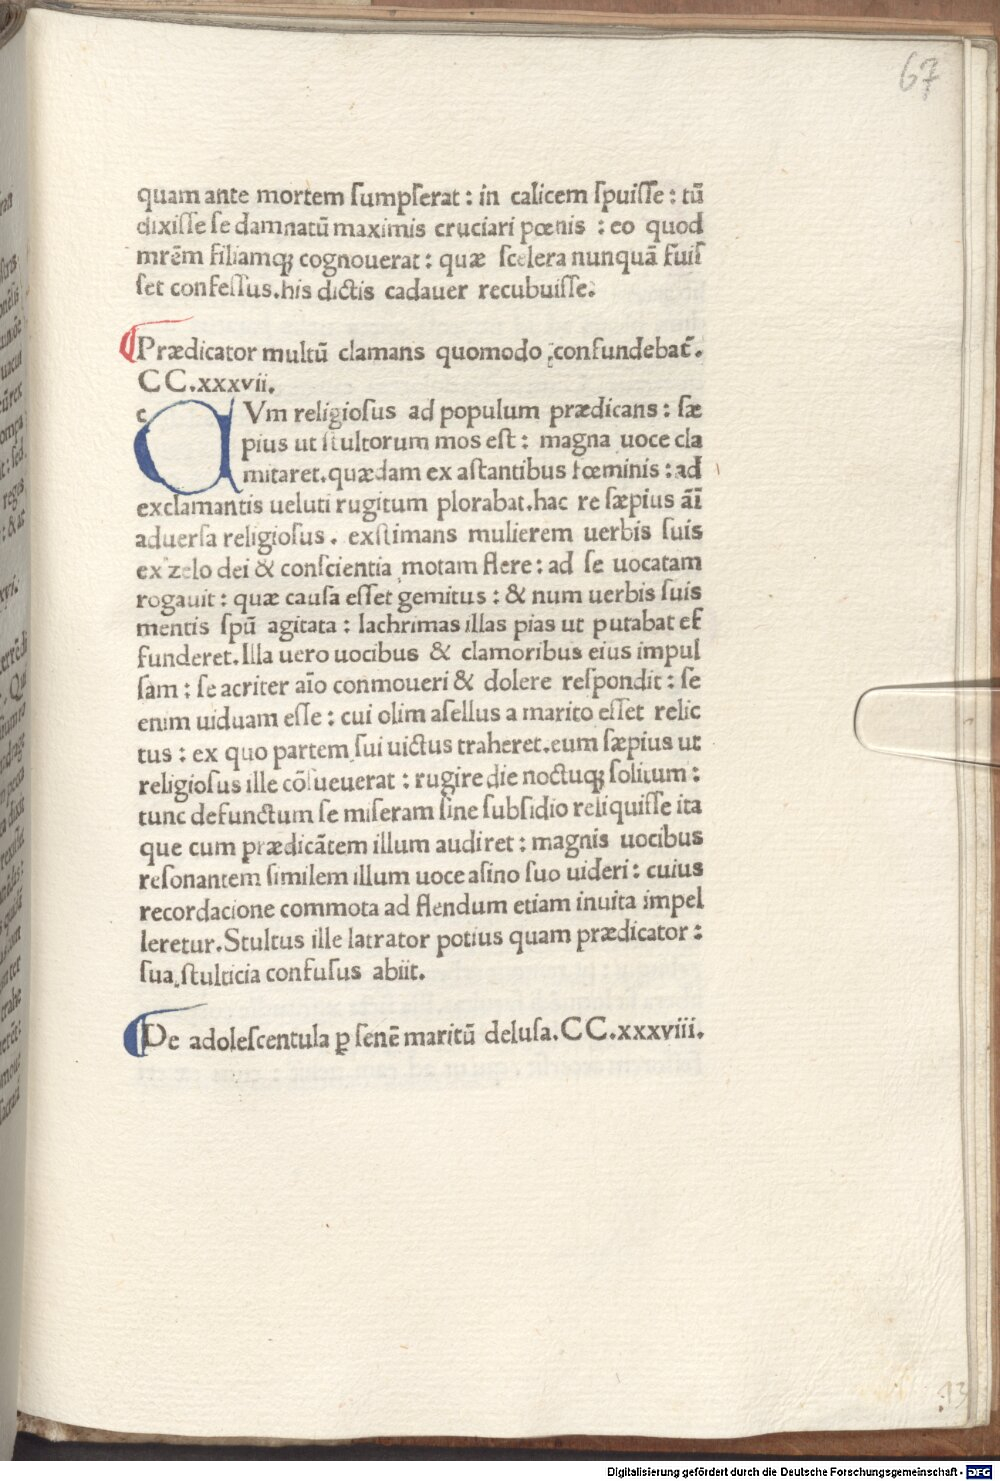 67
quam ante mortem ſumpſerat : in calicem ſpuiſſe : tū
dixiſſe ſe damnatū maximis cruciari pœnis : eo quod
mrēm filiamqꝫ cognouerat : quæ ſcelera nunquā fuiſ
ſet confeſſus. his dictis cadauer recubuiſſe.
Prædicator multū clamans quomodo confundebat̄.
CC.xxxvii.
c Vm religioſus ad populum prædicans : ſæ
pius ut ſtultorum mos eſt : magna uoce cla
mitaret. quædam ex aſtantibus fœminis : ad
exclamantis ueluti rugitum plorabat. hac re ſæpius āī
aduerſa religioſus. exſtimans mulierem uerbis ſuis
ex zelo dei & conſcientia motam flere : ad ſe uocatam
rogauit : quæ cauſa eſſet gemitus : & num uerbis ſuis
mentis ſpū agitata : lachrimas illas pias ut putabat ef
funderet. Illa uero uocibus & clamoribus eius impul
ſam : ſe acriter aīo conmoueri & dolere reſpondit : ſe
enim uiduam eſſe : cui olim aſellus a marito eſſet relic
tus : ex quo partem ſui uictus traheret. eum ſæpius ut
religioſus ille cōſueuerat : rugire die noctuqꝫ ſolitum :
tunc defunctum ſe miſeram ſine ſubſidio reliquiſſe ita
que cum prædicātem illum audiret : magnis uocibus
reſonantem ſimilem illum uoce aſino ſuo uideri : cuius
recordacione commota ad flendum etiam inuita impel
leretur. Stultus ille latrator potius quam prædicator :
ſua ſtulticia confuſus abiit.
De adoleſcentula ꝑ ſenē maritū deluſa. CC.xxxviii.
13
Digitalisierung gefördert durch die Deutsche Forschungsgemeinschaft - DFG